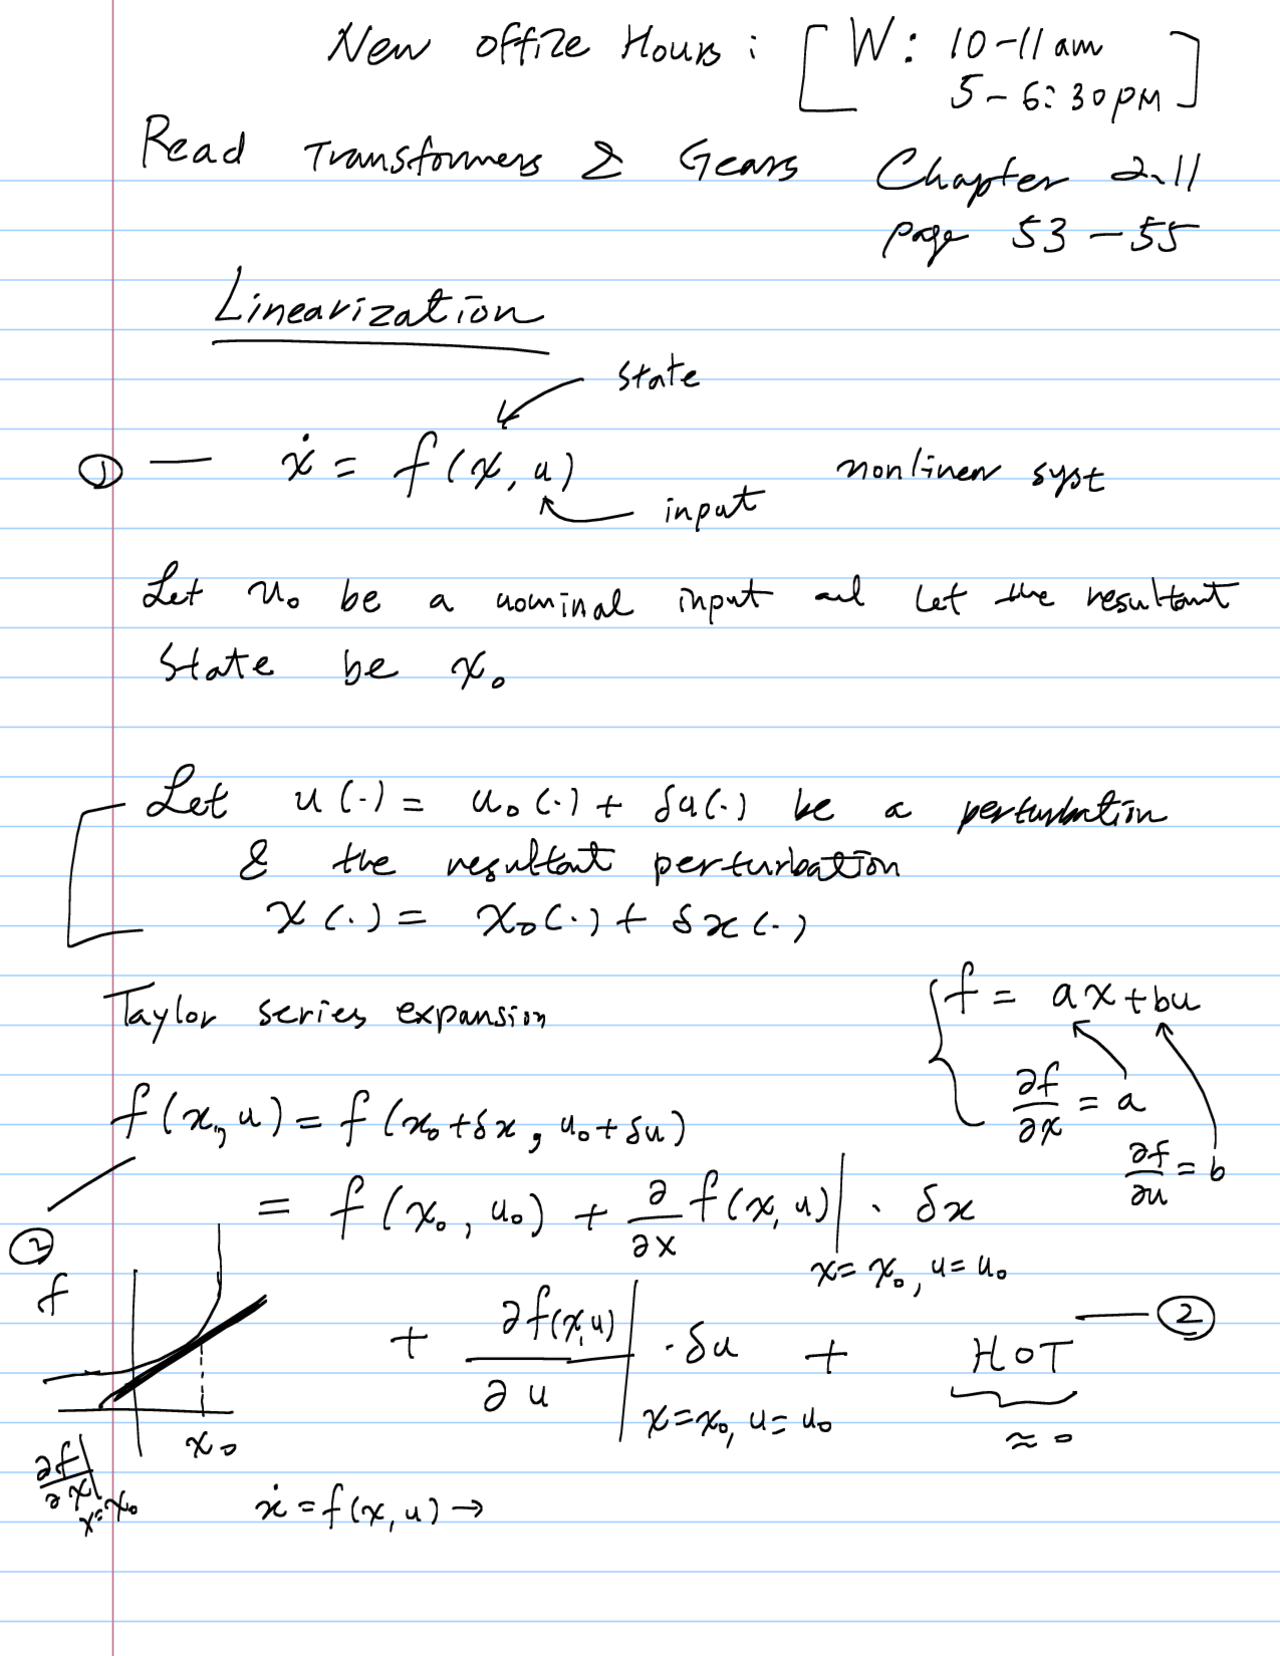 New office Hours : [ W: 10-11 am
5-6:30 PM ]
Read Transformers & Gears Chapter 2.11
page 53-55
Linearization
state
① — ẋ = f(x, u) nonlinear syst
input
Let u₀ be a nominal input and let the resultant
state be x₀
Let u(·) = u₀(·) + δu(·) be a perturbation
& the resultant perturbation
x(·) = x₀(·) + δx(·)
Taylor series expansion
f = ax + bu
∂f/∂x = a
∂f/∂u = b
f(x, u) = f(x₀+δx, u₀+δu)
= f(x₀, u₀) + ∂/∂x f(x, u)| · δx
x = x₀, u = u₀
②
f
+ ∂f(x,u)/∂u | · δu + HOT — ②
x = x₀, u = u₀
≈ 0
x₀
∂f/∂x| x=x₀
ẋ = f(x, u) →